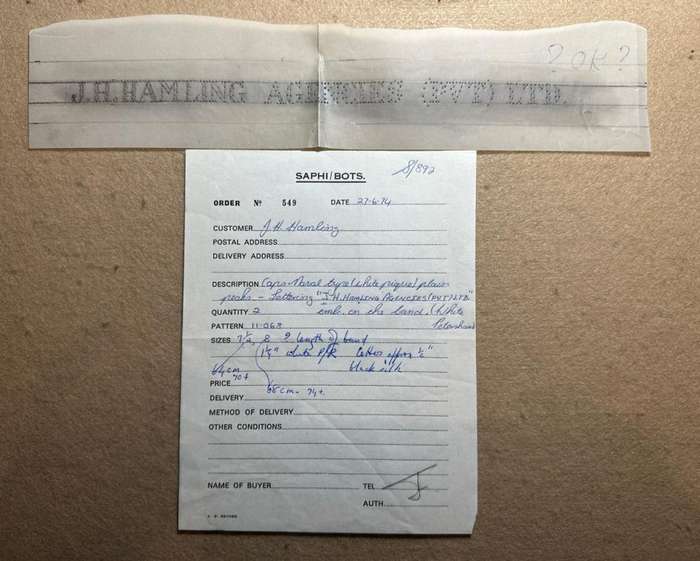 ? OK ?
J.H. HAMLING AGENCIES (PVT) LTD.
SAPHI/BOTS.
S/892
ORDER No 549 DATE 27-6-74
CUSTOMER J H Hamling
POSTAL ADDRESS
DELIVERY ADDRESS
DESCRIPTION Caps Naval type (white pique) plain
peaks - Lettering "J.H. HAMLING AGENCIES (PVT) LTD"
QUANTITY 2 emb. on the band. (White
PATTERN 11-063 Petersham
SIZES 7½, 8 length of band
1½" white P/R letters approx ½"
64cm black silk
70+
PRICE
68cm - 74+
DELIVERY
METHOD OF DELIVERY
OTHER CONDITIONS
NAME OF BUYER TEL
AUTH.